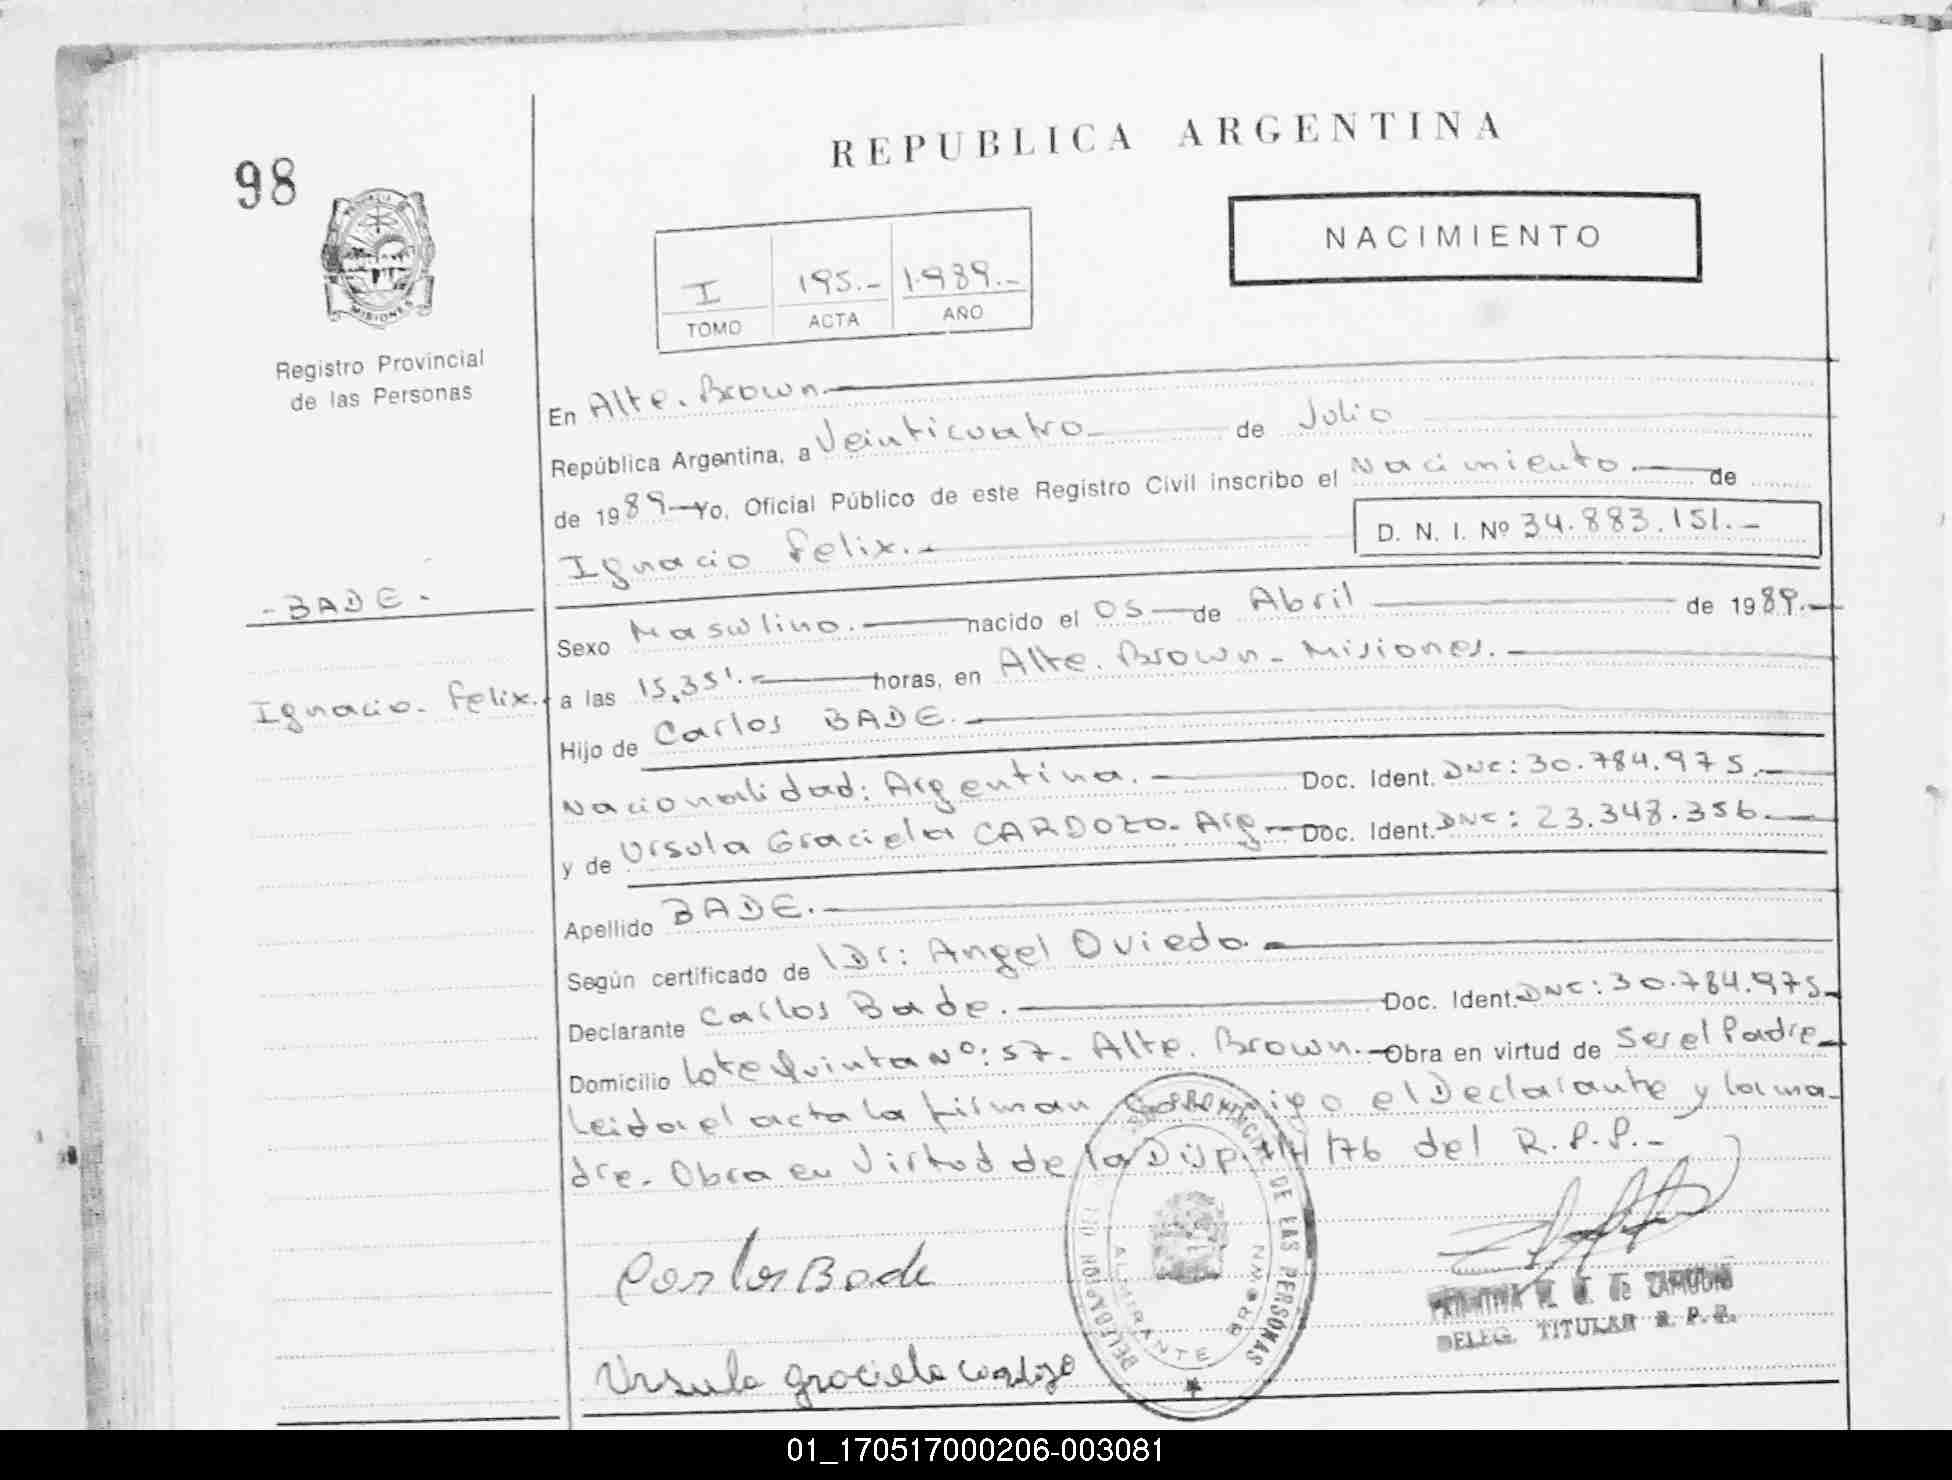 98
REPUBLICA ARGENTINA
NACIMIENTO
I 195.- 1.989.-
TOMO ACTA AÑO
Registro Provincial
de las Personas
MISIONES
En Alte. Brown.
República Argentina, a Veinticuatro de Julio
de 1989 Yo, Oficial Público de este Registro Civil inscribo el Nacimiento. de
Ignacio Felix.-
D. N. I. Nº 34.883.151.-
-BADE-
Ignacio. Felix.
Sexo Masculino. nacido el 05 de Abril de 1989.-
a las 15,35'. horas, en Alte. Brown - Misiones.
Hijo de Carlos BADE.
Nacionalidad: Argentina. Doc. Ident. DNI: 30.784.975.-
y de Ursula Graciela CARDOZO. Arg. Doc. Ident. DNI: 23.348.356.
Apellido BADE.
Según certificado de Dr: Angel Oviedo.
Declarante Carlos Bade. Doc. Ident. DNI: 30.784.975.
Domicilio Lote Quinta Nº: 57- Alte. Brown. Obra en virtud de Ser el Padre
Leida el acta la firman conmigo el Declarante y la ma-
dre. Obra en Virtud de la Disp. 76 del R.P.P.-
Carlos Bade
Ursula graciela cardozo
DELEGACION PROVINCIAL DE LAS PERSONAS
ALMIRANTE BROWN
DE ZAMUDIO
DELEG. TITULAR R. P. P.
01_170517000206-003081